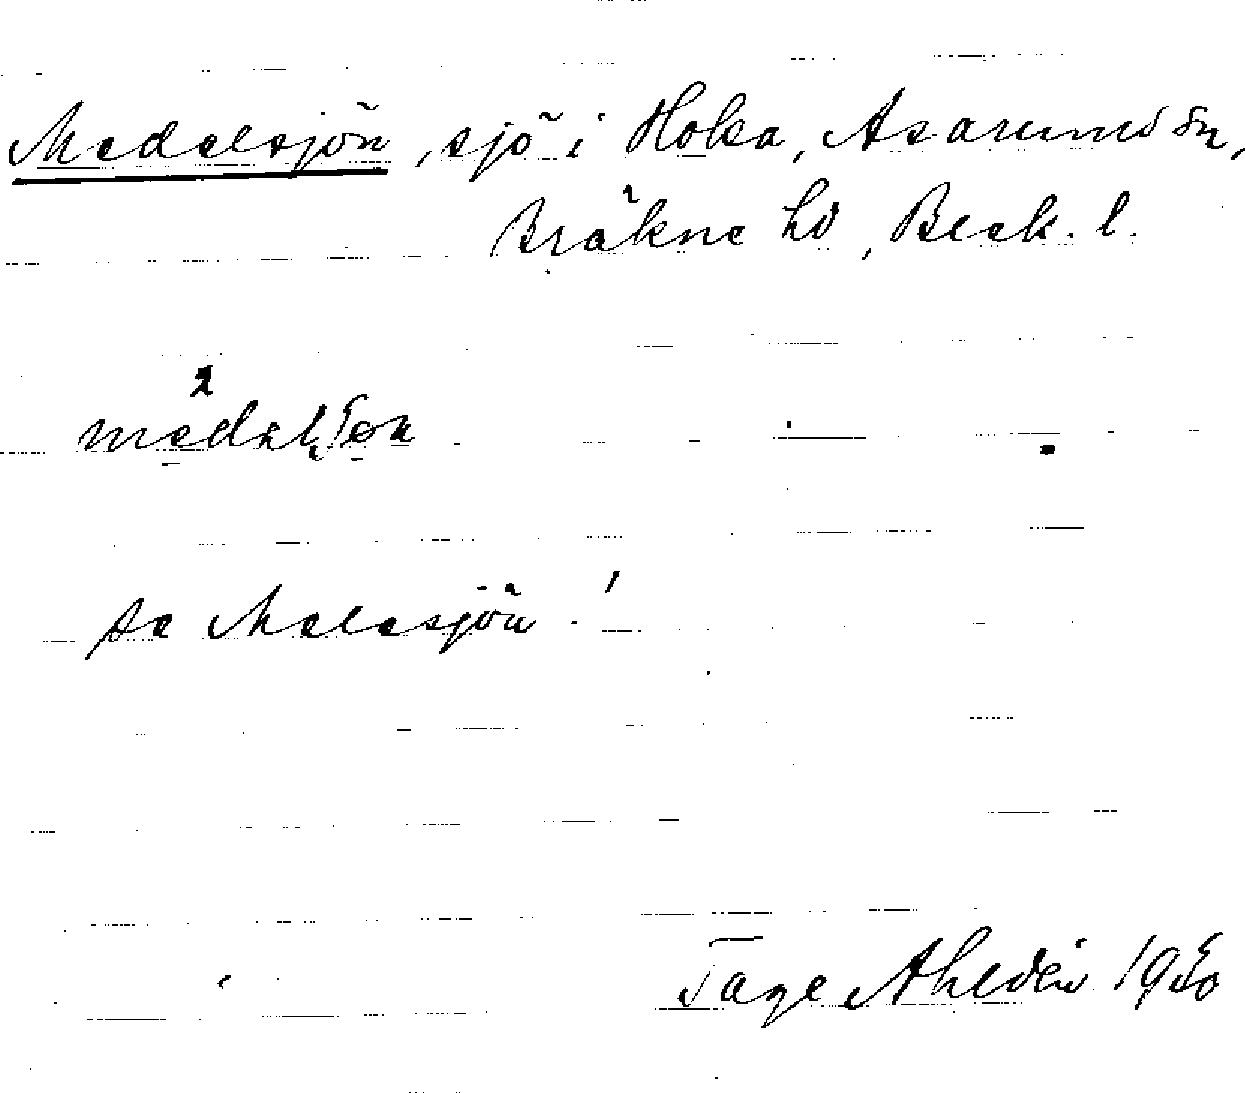 Medelsjön, sjö i Hoka, Asarums sn,
Bräkne hd, Blek. l.
se Melesjön!
Tage Ahldén 1950